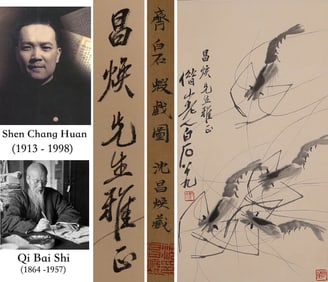 Shen Chang Huan
(1913 - 1998)
Qi Bai Shi
(1864 -1957)
昌煥先生雅正
齊白石蝦戲圖 沈昌煥藏
昌煥先生雅正
借山老人白石八九